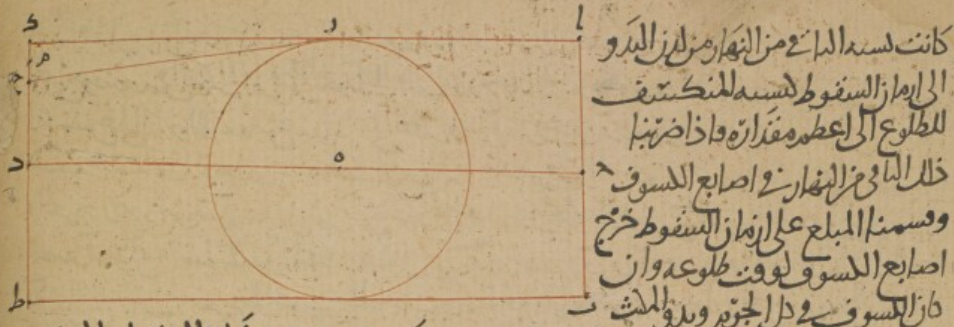 كانت لنسبة الباقي من النهار من لدن البدو
الى ازمان السقوط لنسبة المنكسف
للطلوع الى اعظم مقداره واذا ضربنا
ذلك الباقي من النهار في اصابع الكسوف
وقسمنا المبلغ على ازمان السقوط خرج
اصابع الكسوف لوقت طلوعه وان
كان الكسوف في كل الجزو وبدو المكث
ا
ر
م
ح
د
ه
ط